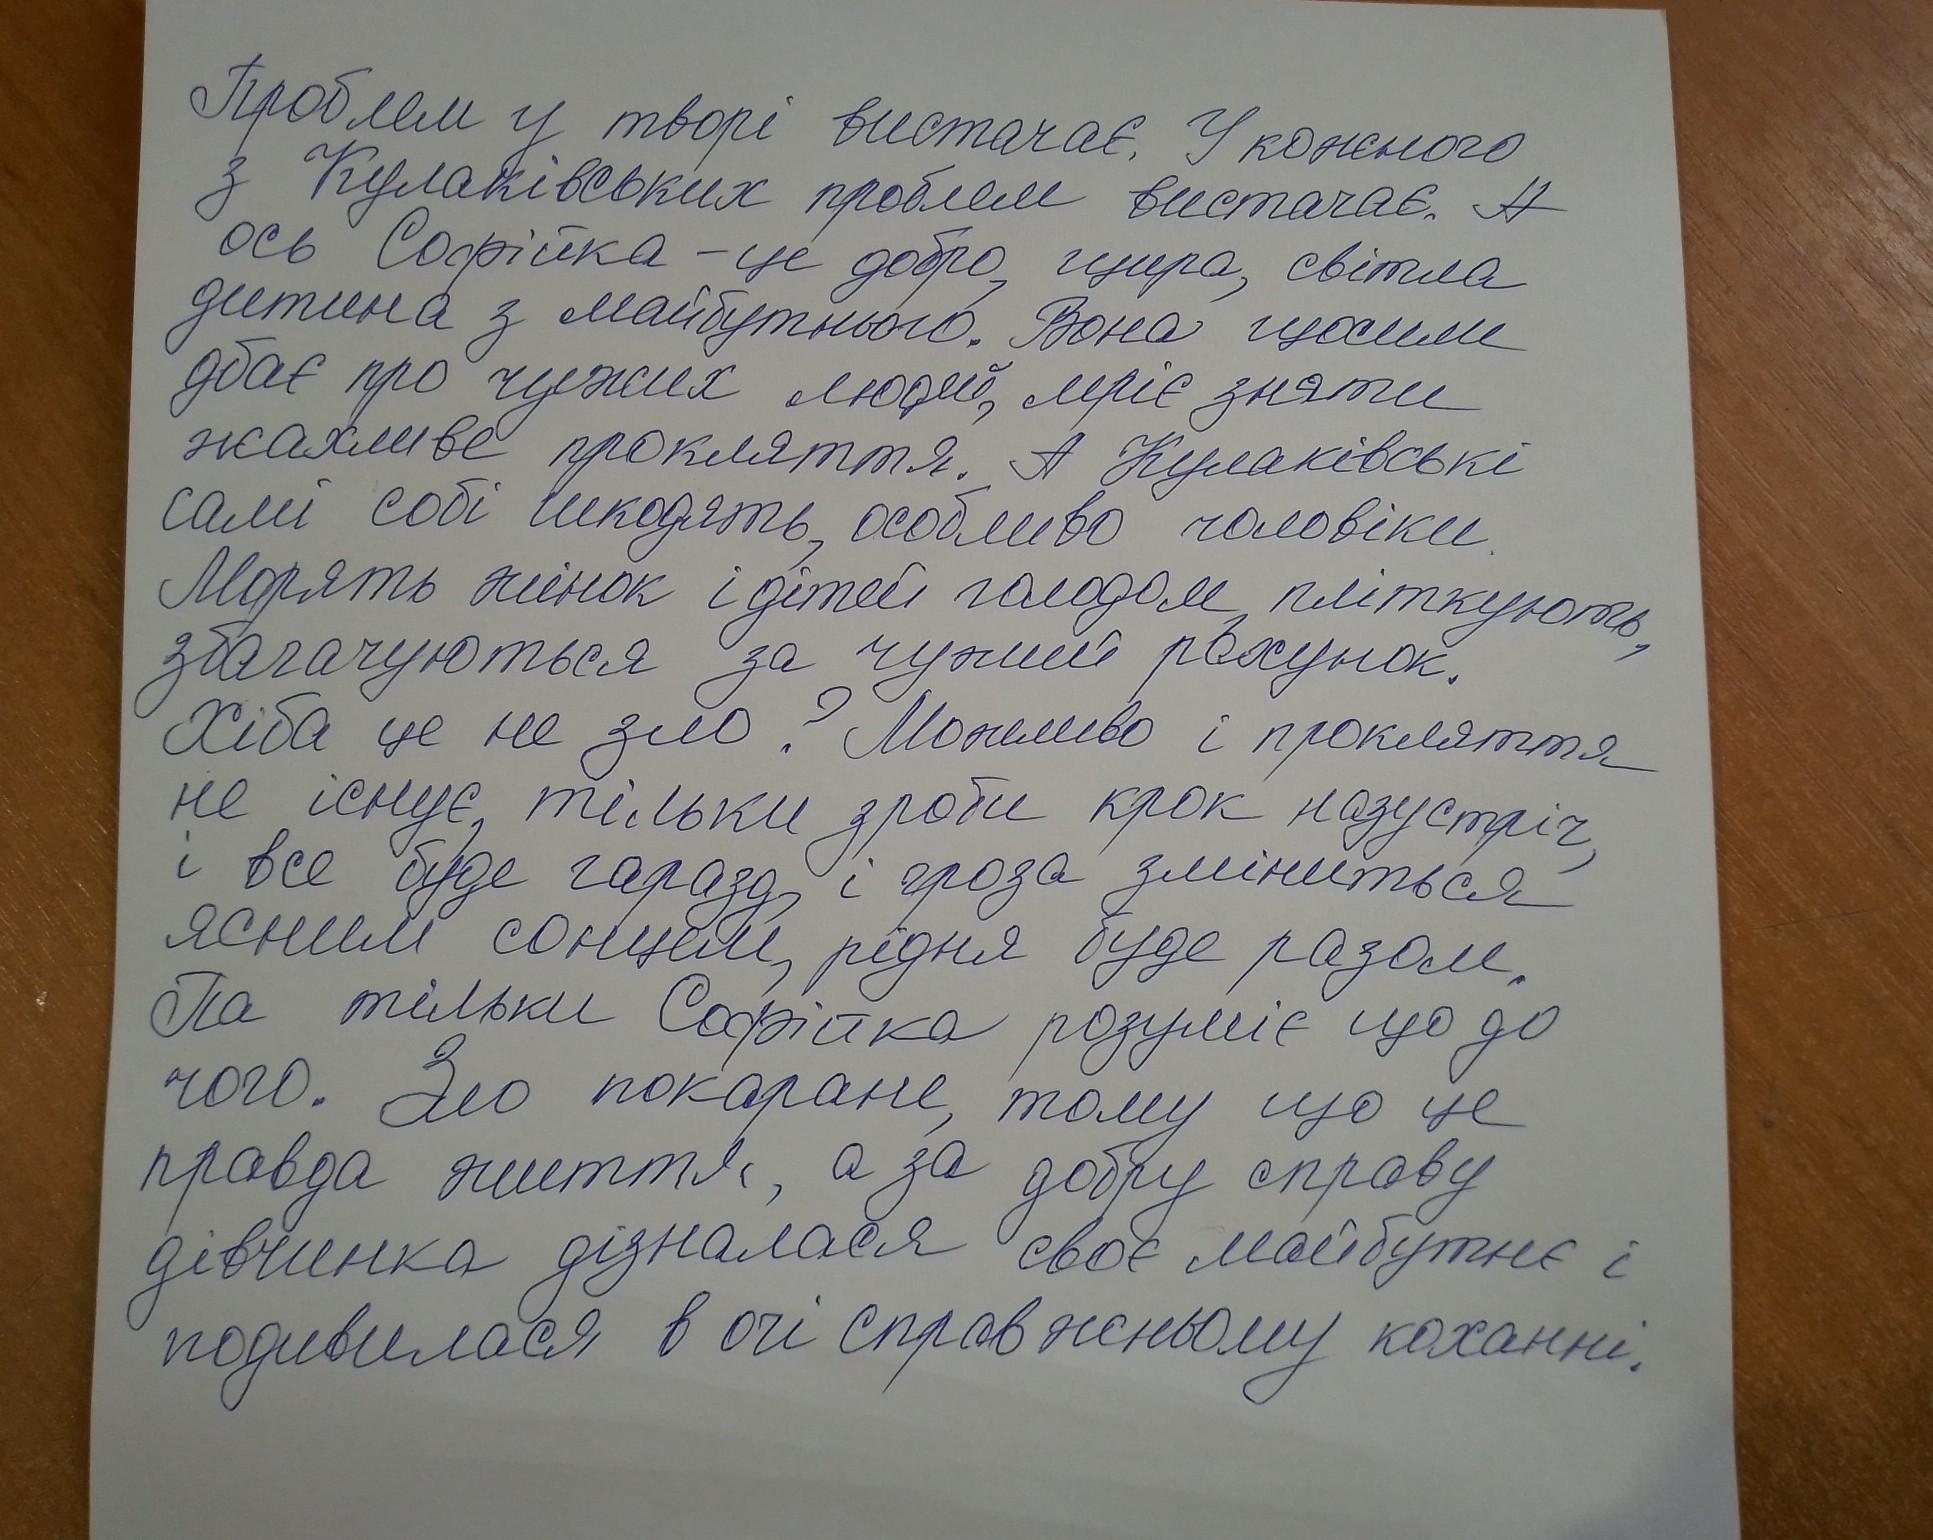 Проблем у творі вистачає. У кожного
з Кулаківських проблем вистачає. А
ось Софійка – це добро, щира, світла
дитина з майбутнього. Вона щосили
дбає про чужих людей, мріє зняти
жахливе прокляття. А Кулаківські
самі собі шкодять, особливо чоловіки.
Морять жінок і дітей голодом, пліткують,
збагачуються за чужий рахунок.
Хіба це не зло? Можливо і прокляття
не існує, тільки зроби крок назустріч,
і все буде гаразд, і гроза зміниться
ясним сонцем, рідня буде разом.
Та тільки Софійка розуміє що до
чого. Зло покаране, тому що це
правда життя, а за добру справу
дівчинка дізналася своє майбутнє і
подивилася в очі справжньому коханні.